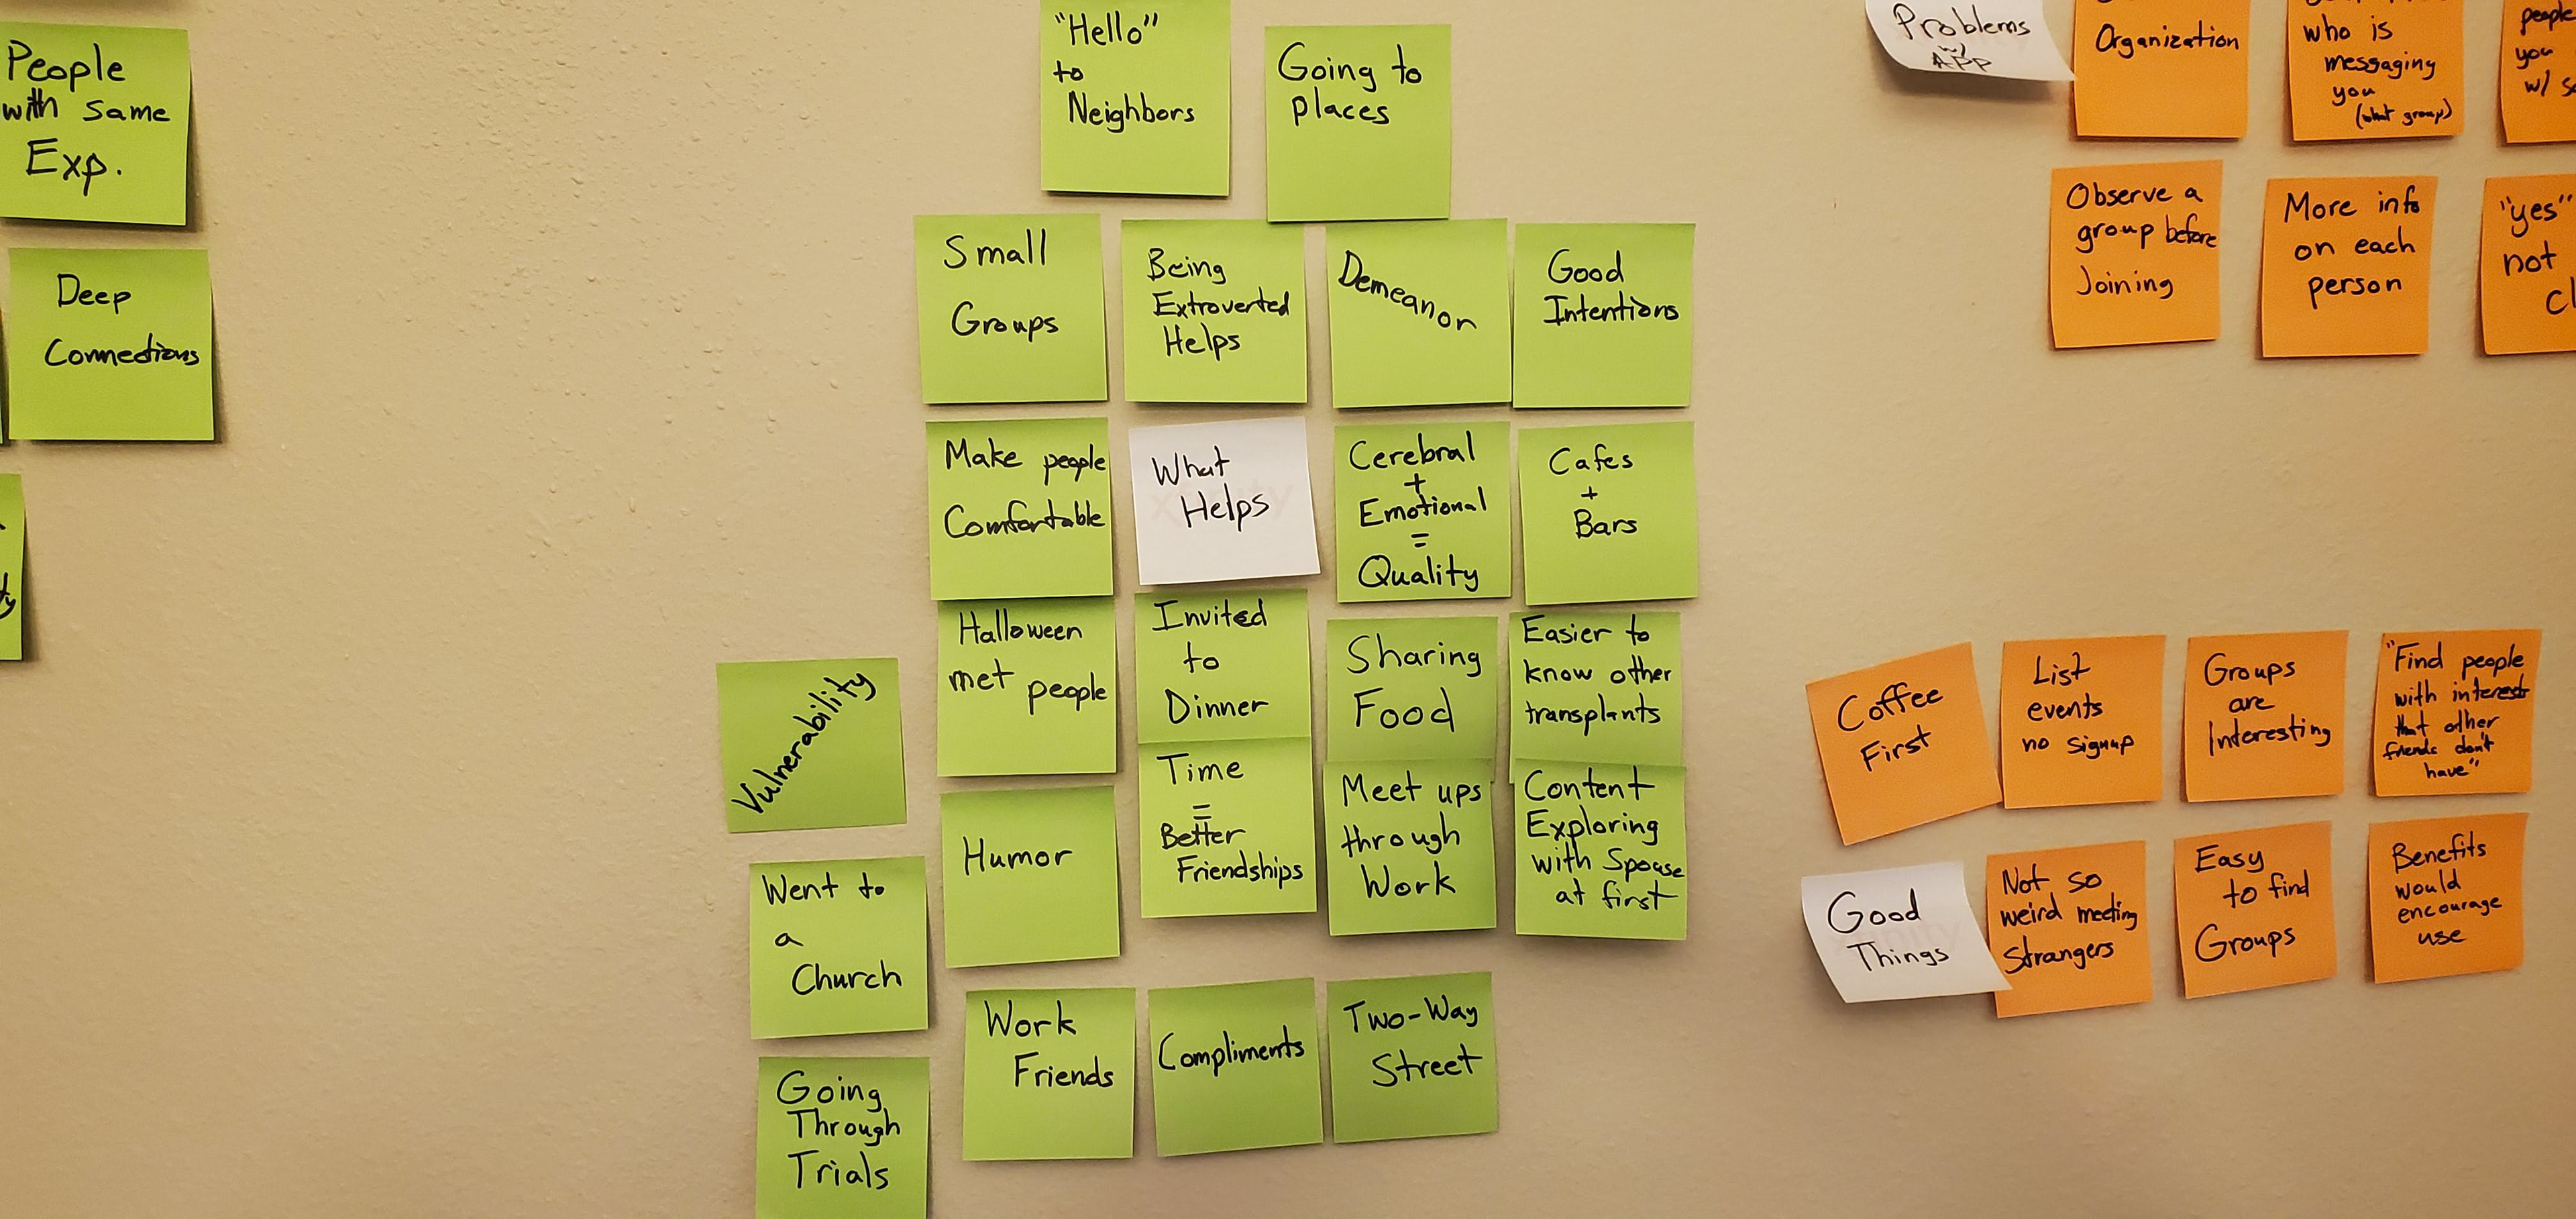 People
with same
Exp.
Deep
Connections
"Hello"
to
Neighbors
Going to
places
Small
Groups
Being
Extroverted
Helps
Demeanor
Good
Intentions
Make people
Comfortable
What
Helps
Cerebral
+
Emotional
=
Quality
Cafes
+
Bars
Halloween
met people
Invited
to
Dinner
Sharing
Food
Easier to
know other
transplants
Vulnerability
Humor
Time
=
Better
Friendships
Meet ups
through
Work
Content
Exploring
with Spouse
at first
Went to
a
Church
Work
Friends
Compliments
Two-Way
Street
Going
Through
Trials
Problems
w/
APP
Organization
who is
messaging
you
(what group)
people
you
w/
Observe a
group before
Joining
More info
on each
person
"yes"
not
Coffee
First
List
events
no signup
Groups
are
Interesting
"Find people
with interests
that other
friends don't
have"
Good
Things
Not so
weird meeting
Strangers
Easy
to find
Groups
Benefits
would
encourage
use